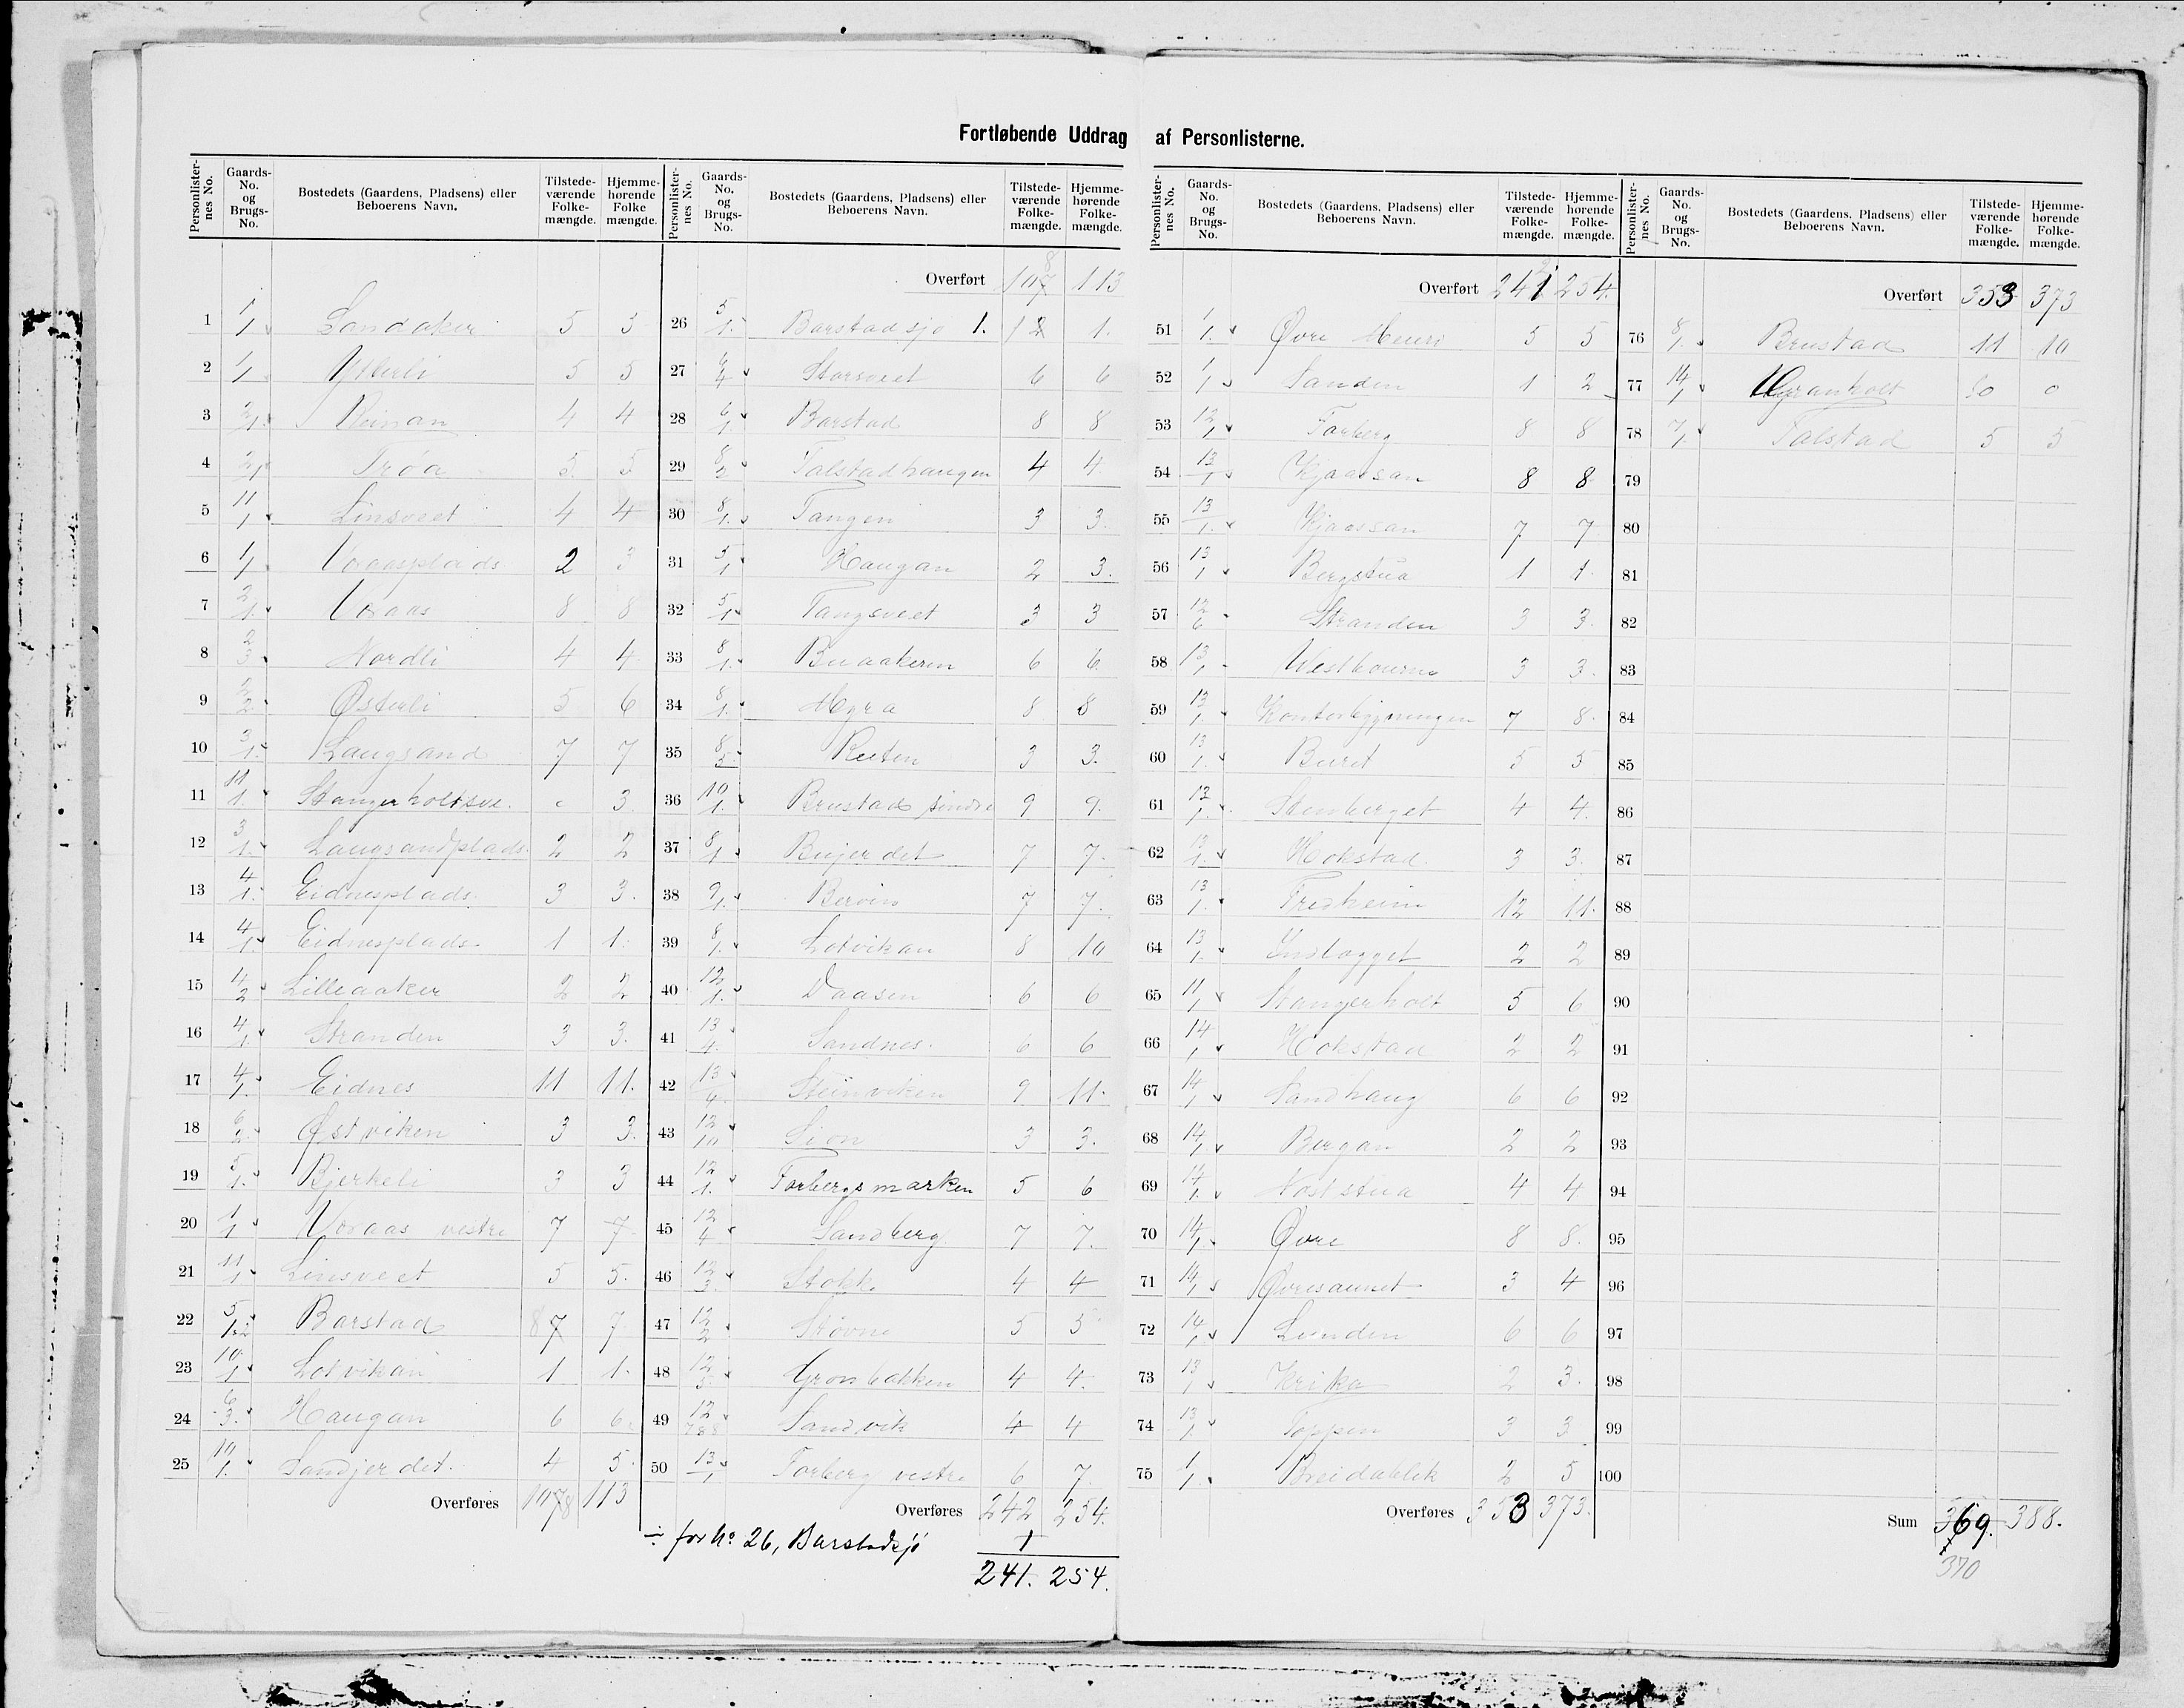 Fortløbende Uddrag af Personlisterne.
Personlisternes No. Gaards-No. og Brugs-No. Bostedets (Gaardens, Pladsens) eller Beboerens Navn. Tilstedeværende Folkemængde. Hjemmehørende Folkemængde.
1 1/1 Landaker 5 5
2 1/1 Ytterli 5 5
3 2/1 Reinan 4 4
4 2/1 Trøa 5 5
5 11/1 Linsveet 4 4
6 1/1 Voraasplads 2 3
7 2/1 Voraas 8 8
8 2/3 Nordli 4 4
9 2/2 Østerli 5 6
10 3/1 Langsand 7 7
11 11/1 Stangerholtsve. 3
12 3/1 Langsandplads 2 2
13 4/1 Eidnesplads 3 3.
14 4/1 Eidnesplads 1 1.
15 4/2 Lilleaaker 2 2
16 4/1 Stranden 3 3.
17 4/1 Eidnes 11 11.
18 6/2 Østviken 3 3.
19 5/1 Bjerkeli 3 3
20 1/1 Voraas vestre 7 7
21 11/1 Linsveet 5 5.
22 5/1,2 Barstad 8 7 7
23 10/1 Lotvikan 1 1.
24 6/3 Haugan 6 6
25 10/1 Sandjerdet. 4 5
Overføres 107 8 113
Overført 107 8 113
26 5/1 Barstadsjø 1. 1 2 1.
27 6/4 Storsveet 6 6
28 6/1 Barstad 8 8
29 8/2 Talstadhaugen 4 4
30 8/1 Tangen 3 3.
31 5/1 Haugan 2 3.
32 5/1 Tangsveet 3 3
33 8/1 Buaakeren 6 6
34 8/1 Myra 8 8
35 8/5 Reiten 3 3.
36 10/1 Brustad søndre 9 9.
37 8/1 Bujerdet 7 7.
38 9/1 Berøien 7 7.
39 8/1 Lotvikan 8 10
40 12/1 Daasen 6 6
41 13/4 Sandnes. 6 6
42 13/4 Steinviken 9 11.
43 12/10 Sion 3 3.
44 12/1 Forbergsmarken 5 6
45 12/4 Sandberg 7 7.
46 12/3 Stokke 4 4
47 12/2 Støvne 5 5
48 12/5 Grønbakken 4 4.
49 12/788 Sandvik 4 4
50 13/1 Forberg vestre 6 7
Overføres 242 254.
÷ for No 26, Barstadsjø 1
241. 254.
Overført 241 254.
51 1/1 Øvre 5 5
52 1/1 Sanden 1 2
53 12/1 Forberg 8 8
54 13/1 Kjaassan 8 8
55 13/1 Kjaassan 7 7
56 13/1 Bergstua 1 1.
57 12/6 Stranden 3 3.
58 13/1 Westbourne 3 3.
59 13/1 Kontorbygningen 7 8.
60 13/1 Buret 5 5
61 13/1 Stenberget 4 4.
62 13/1 Hokstad 3 3.
63 13/1 Fredheim 12 11.
64 13/1 Indlægget 2 2
65 11/1 Stangerholt 5 6
66 14/1 Hokstad 2 2
67 14/1 Sandhaug 6 6
68 14/1 Bergan 2 2
69 14/1 Noststua 4 4
70 14/1 Øvre 8 8.
71 14/1 Øvresaunet 3 4
72 14/1 Lunden 6 6
73 13/1 Krika 2 3.
74 13/1 Toppen 3 3
75 1/1 Breidablik 2 5
Overføres 353 373.
Overført 353 373
76 8/1 Brustad 11 10
77 14/1 Granholt 0 0
78 7/1 Talstad 5 5
79
80
81
82
83
84
85
86
87
88
89
90
91
92
93
94
95
96
97
98
99
100
Sum 369. 388.
370